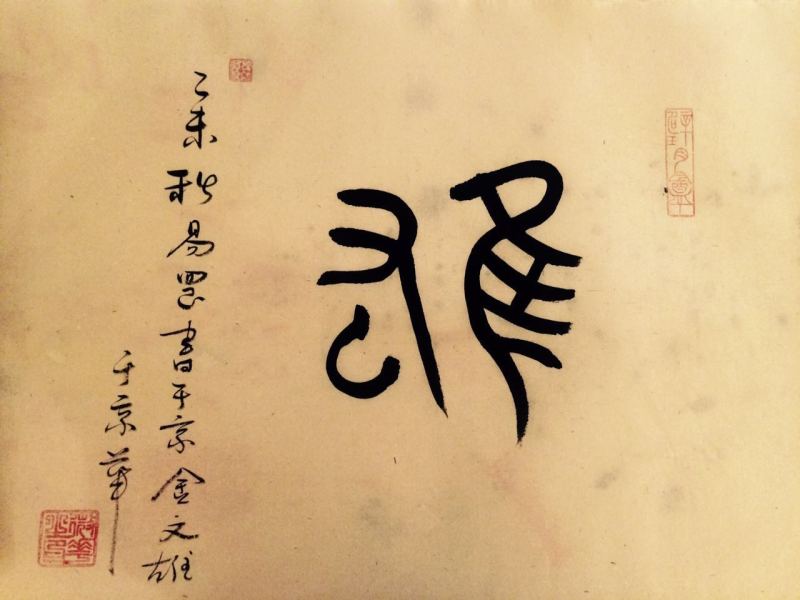 雄
乙未秋易書于京金文雄
于京華